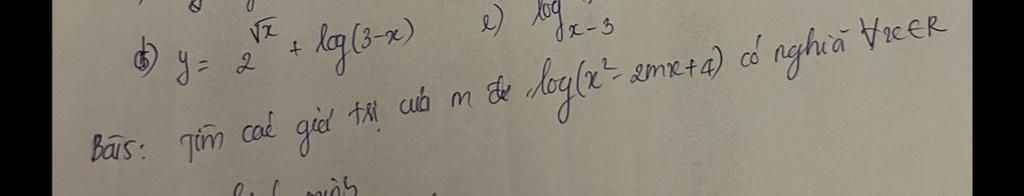 b) y = 2^√x + log(3-x) e) log x-3
Bài 5: Tìm các giá trị của m để log(x² - 2mx + 4) có nghĩa ∀x∈R